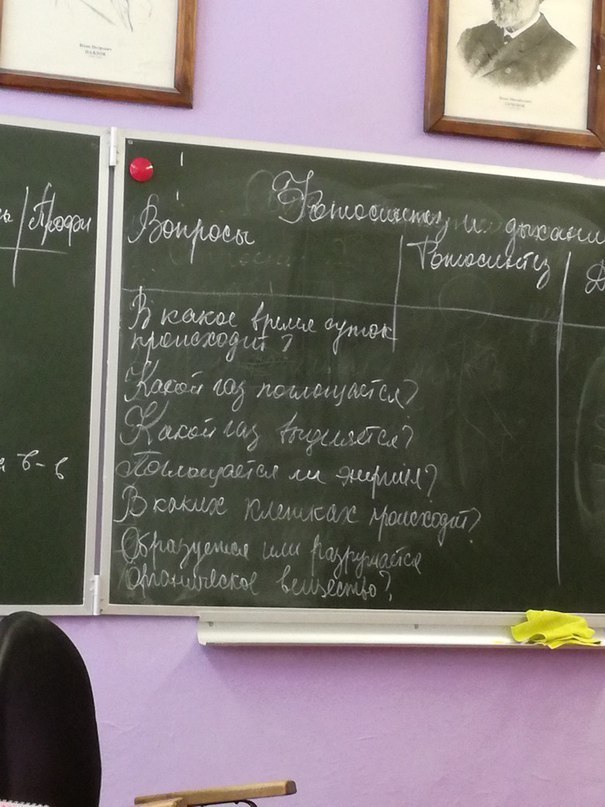 Иван Петрович
ПАВЛОВ
Иван Михайлович
СЕЧЕНОВ
Профи
Фотосинтез и дыхани
Вопросы
Фотосинтез
Д
В какое время суток
происходит?
Какой газ поглощается?
Какой газ выделяется?
Поглощается ли энергия?
В каких клетках происходит?
Образуется или разрушается
органическое вещество?
в-в